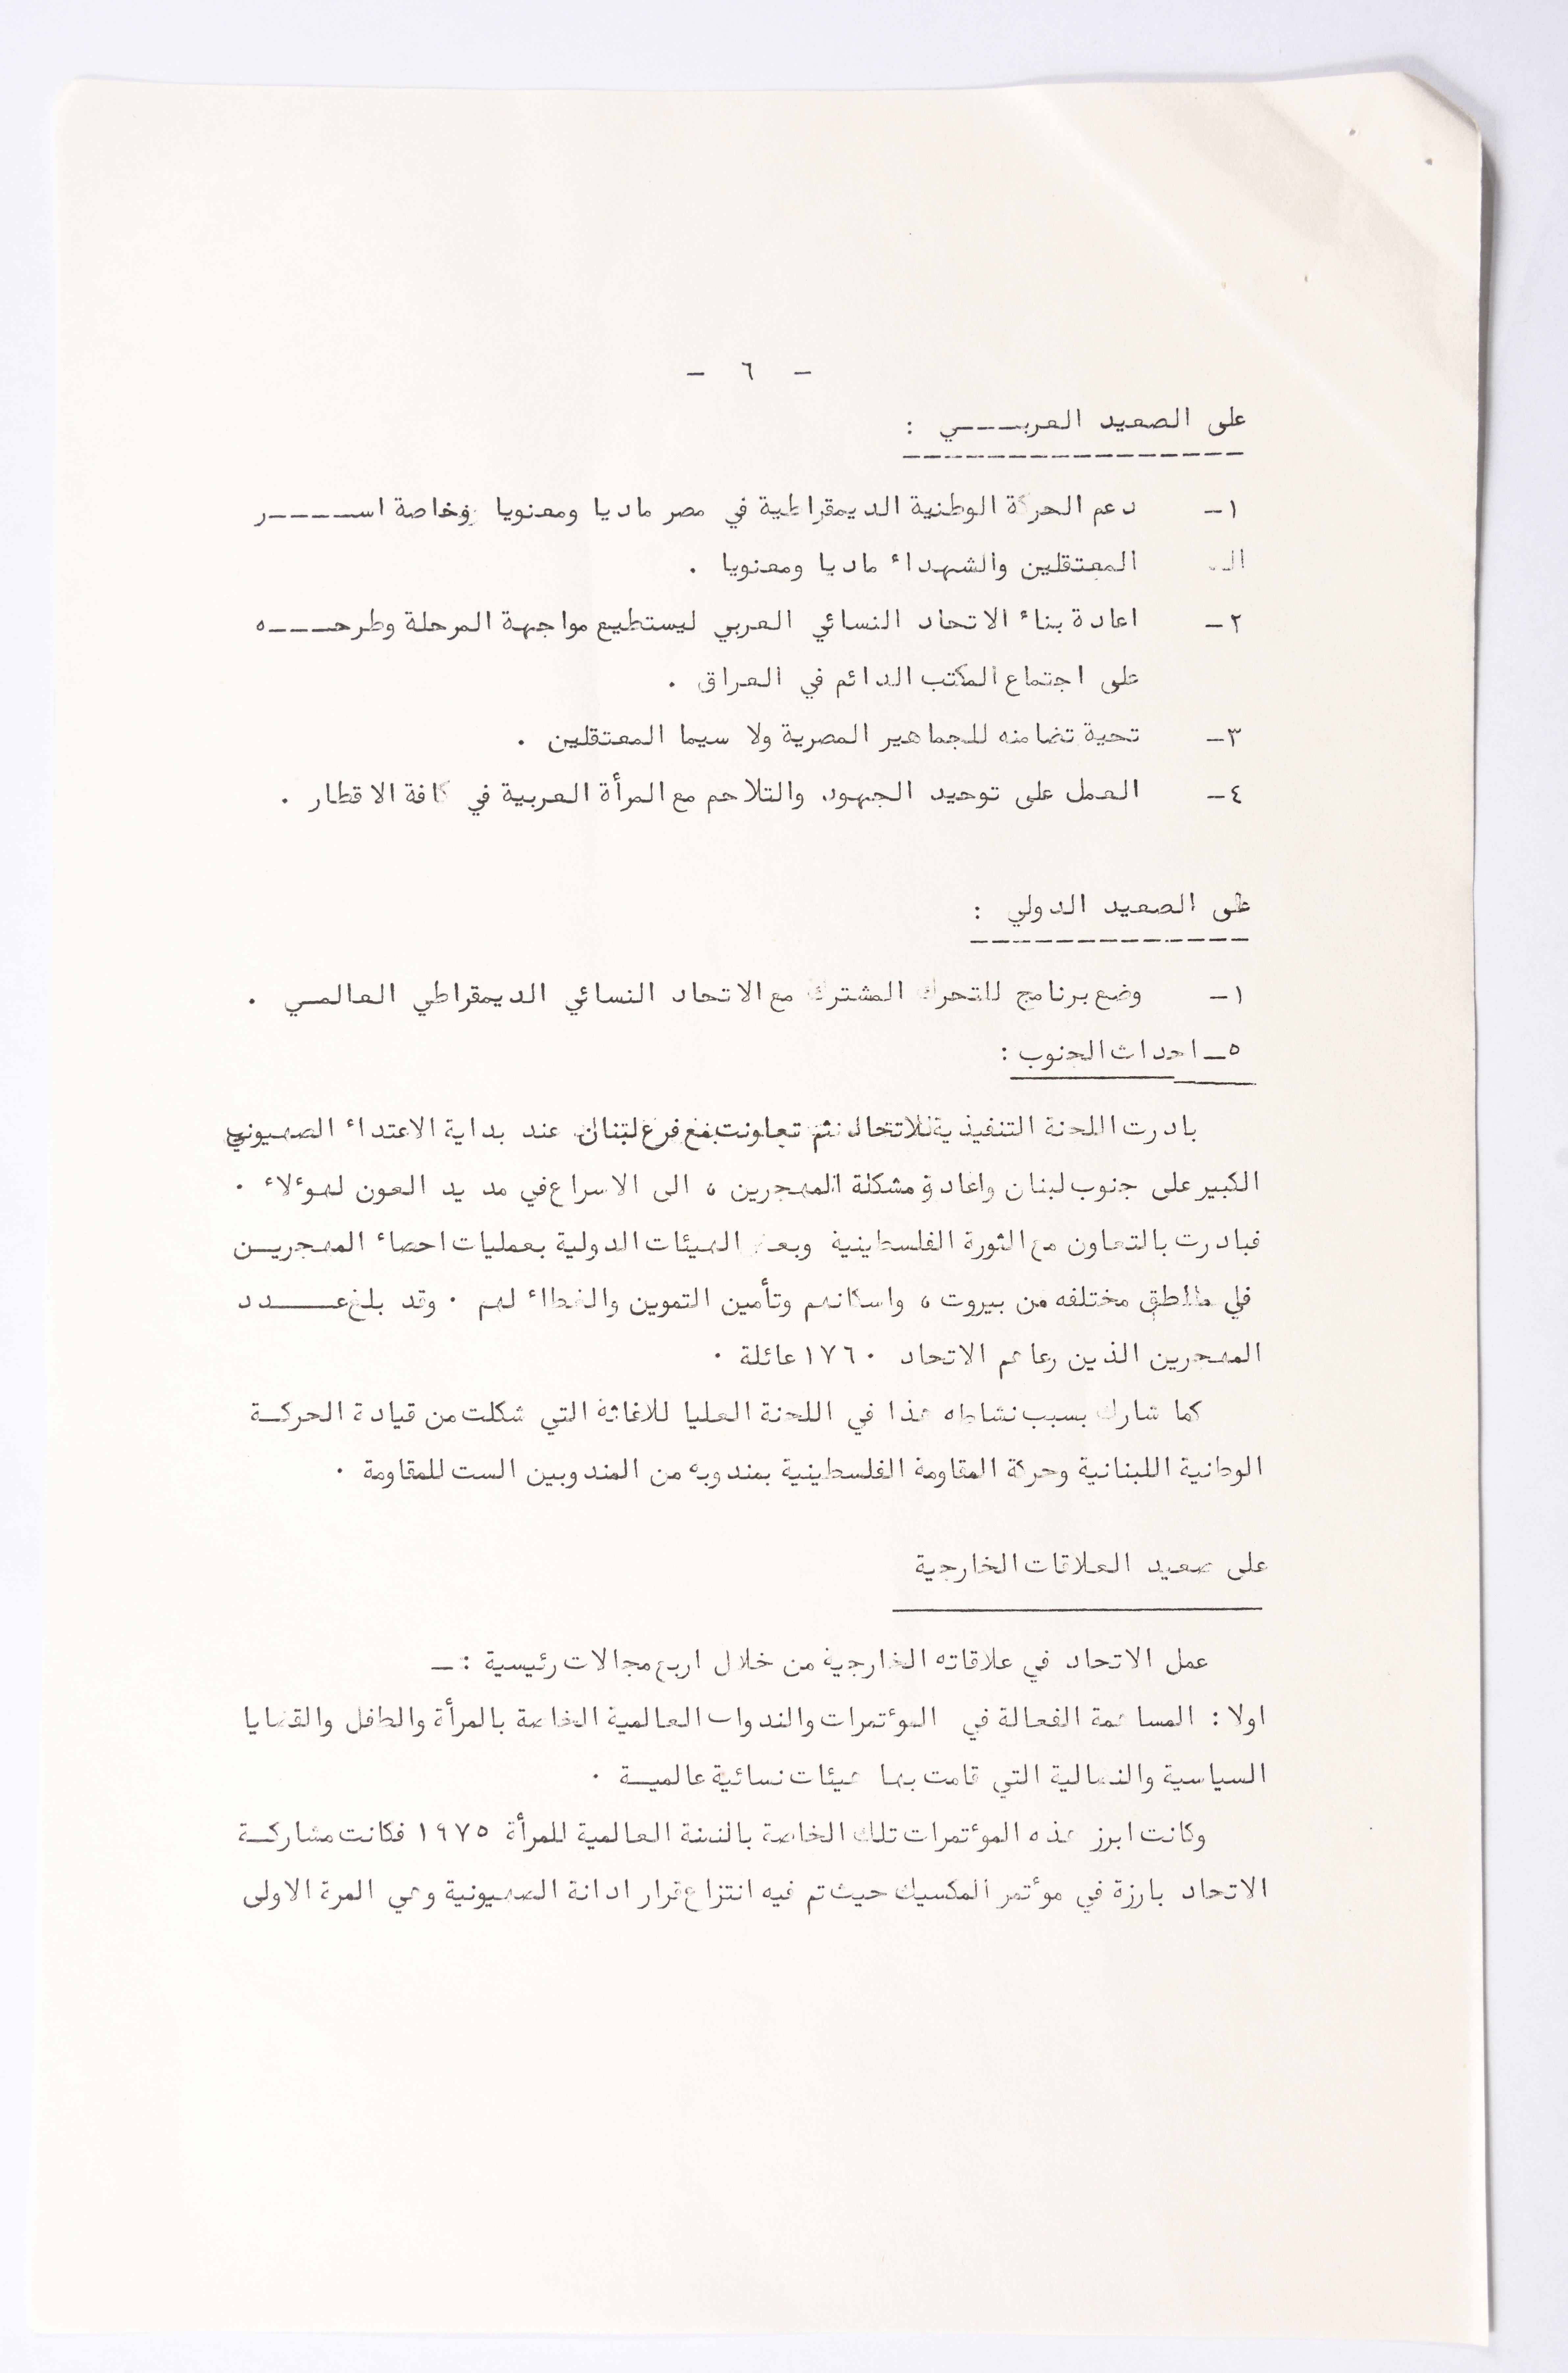 - ٦ -
على الصعيد العربـــــي :
١- دعم الحركة الوطنية الديمقراطية في مصر ماديا ومعنويا وخاصة اســــــر
المعتقلين والشهداء ماديا ومعنويا .
٢- اعادة بناء الاتحاد النسائي العربي ليستطيع مواجهة المرحلة وطرحــــه
على اجتماع المكتب الدائم في العراق .
٣- تحية تضامنه للجماهير المصرية ولا سيما المعتقلين .
٤- العمل على توحيد الجهود والتلاحم مع المرأة العربية في كافة الاقطار .
على الصعيد الدولي :
١- وضع برنامج للتحرك المشترك مع الاتحاد النسائي الديمقراطي العالمـي .
٥- احداث الجنوب :
بادرت اللجنة التنفيذية للاتحاد ثم تعاونت مع فرع لبنان عند بداية الاعتداء الصهيوني
الكبير على جنوب لبنان واعادة مشكلة المهجرين ، الى الاسراع في مد يد العون لهؤلاء .
فبادرت بالتعاون مع الثورة الفلسطينية وبعض الهيئات الدولية بعمليات احصاء المهجريــن
في مناطق مختلفه من بيروت ، واسكانهم وتأمين التموين والغطاء لهم . وقد بلغ عـــــدد
المهجرين الذين رعاهم الاتحاد ١٧٦٠ عائلة .
كما شارك بسبب نشاطه هذا في اللجنة العليا للاغاثة التي شكلت من قيادة الحركــة
الوطنية اللبنانية وحركة المقاومة الفلسطينية بمندوبه من المندوبين الست للمقاومة .
على صعيد العلاقات الخارجية
عمل الاتحاد في علاقاته الخارجية من خلال اربع مجالات رئيسية : -
اولا : المساهمة الفعالة في المؤتمرات والندوات العالمية الخاصة بالمرأة والطفل والقضايا
السياسية والنضالية التي قامت بها هيئات نسائية عالميــة .
وكانت ابرز هذه المؤتمرات تلك الخاصة بالسنة العالمية للمرأة ١٩٧٥ فكانت مشاركــة
الاتحاد بارزة في مؤتمر المكسيك حيث تم فيه انتزاع قرار ادانة الصهيونية وهي المرة الاولى